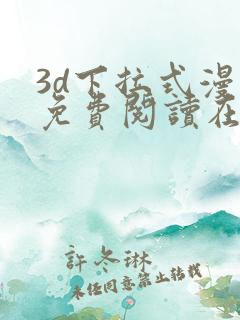 3d下拉式漫
免費閱讀在
許冬琳
未经同意禁止转载